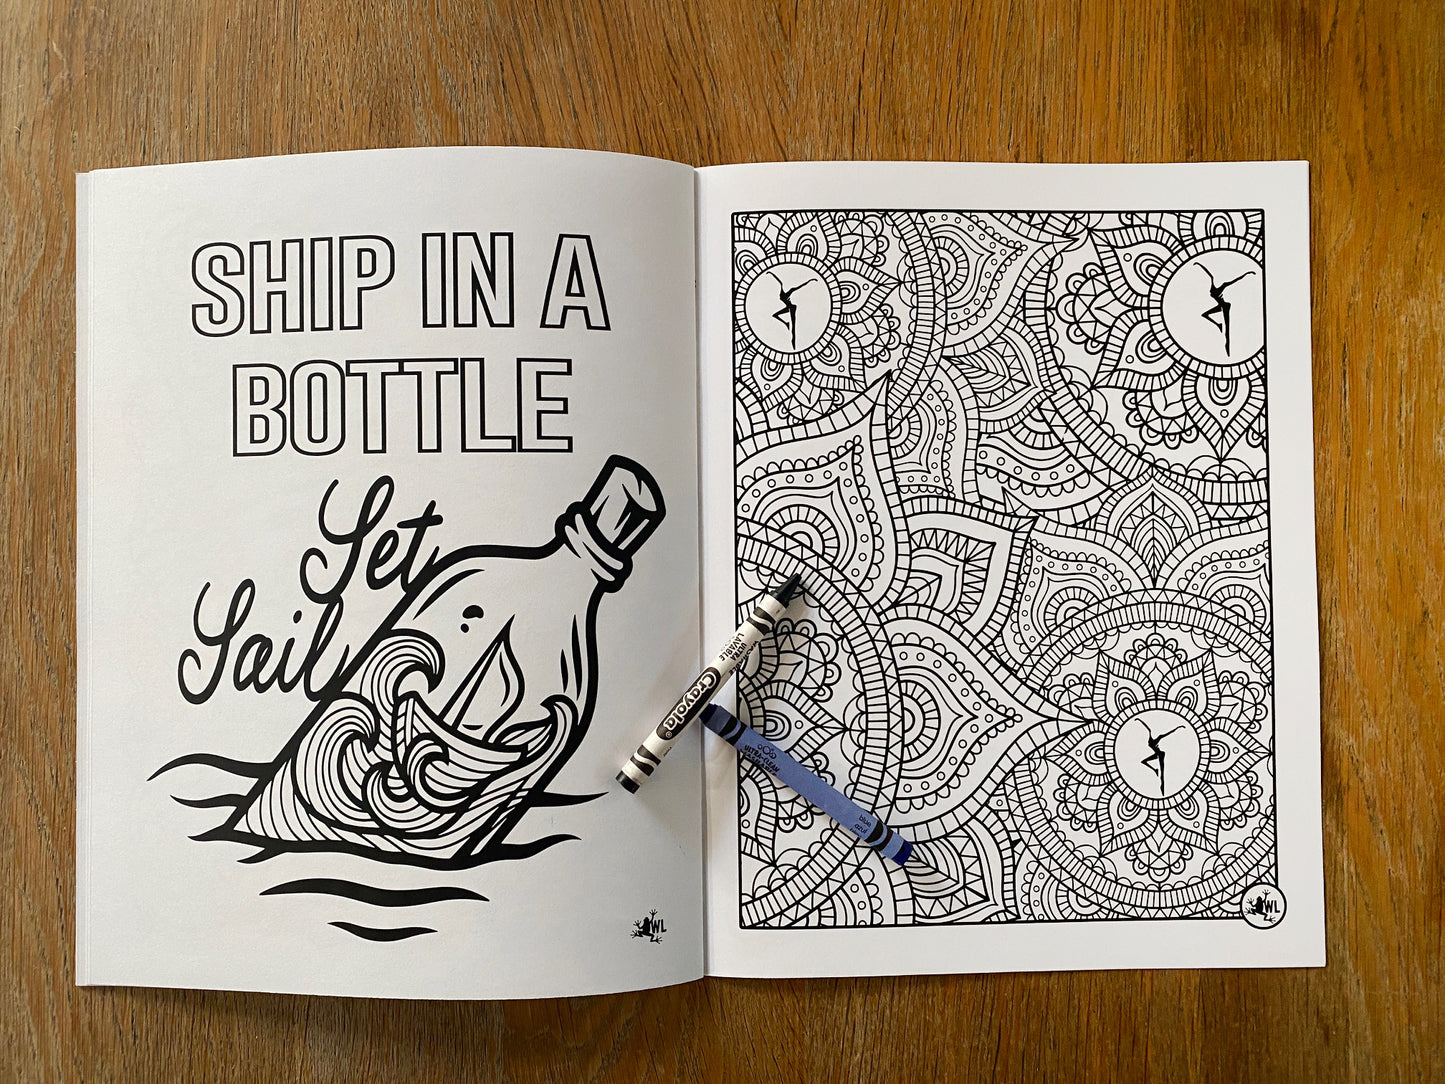 SHIP IN A
BOTTLE
Set
Sail
WL
Crayola
ULTRA
ULTRA-CLEAN
blue
azul
WL